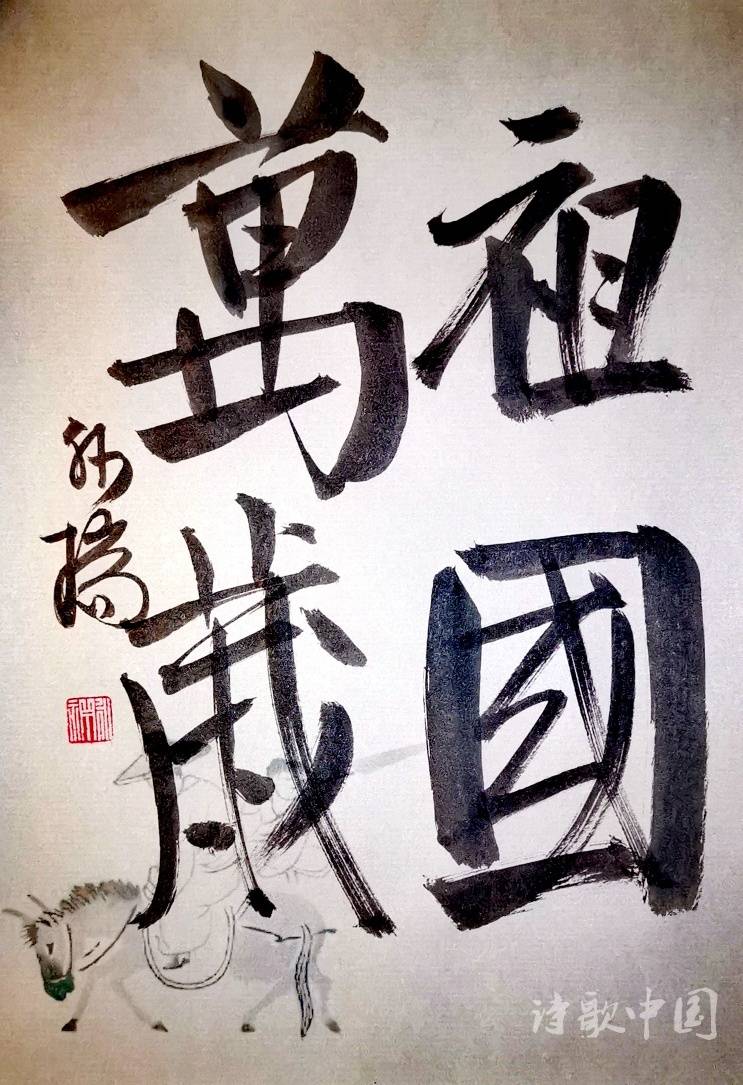 祖國
萬歲
诗歌中国